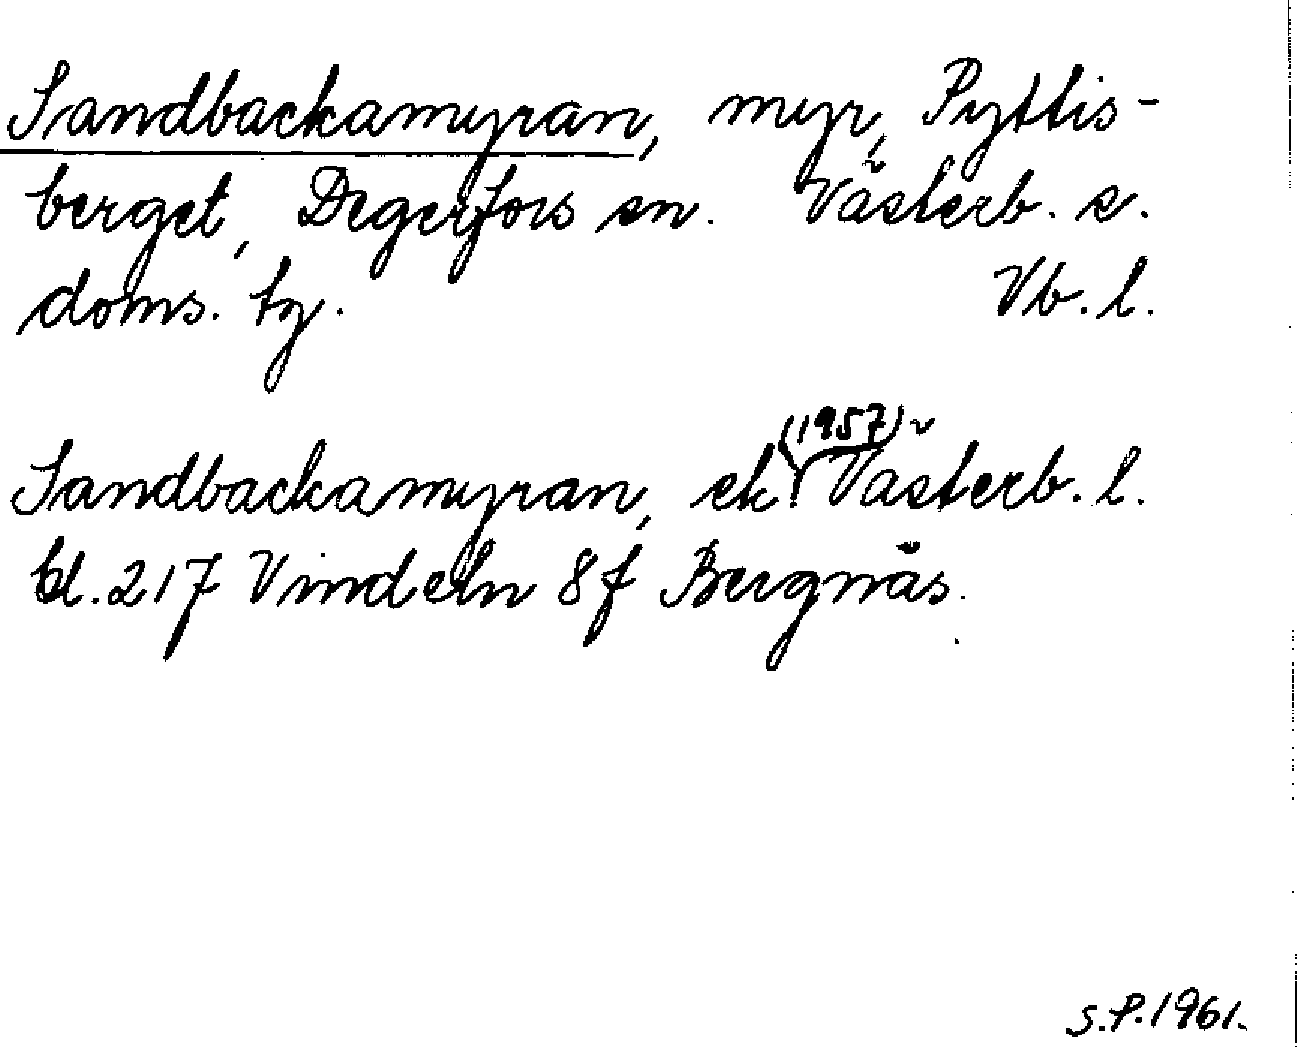 Sandbackamyran, myr, Pyttlis-
berget, Degerfors sn. Västerb. s.
doms. tg. Vb. l.
Sandbackamyran, ek. (1957) Västerb. l.
bl. 217 Vindeln 8f Bergnäs.
S.P. 1961.